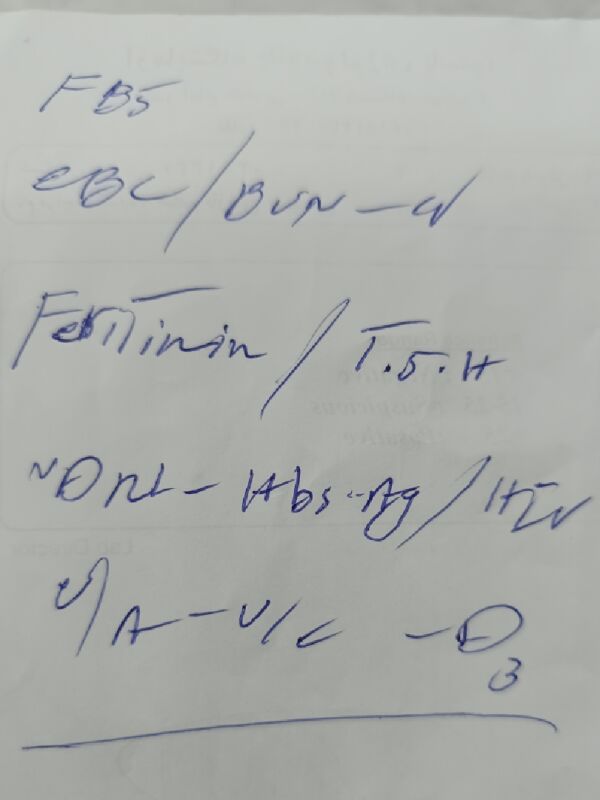 FBS
CBC / BUN - Cr
Ferritinin / T.S.H
VDRL - Hbs-Ag / HIV
U/A - U/C - D3